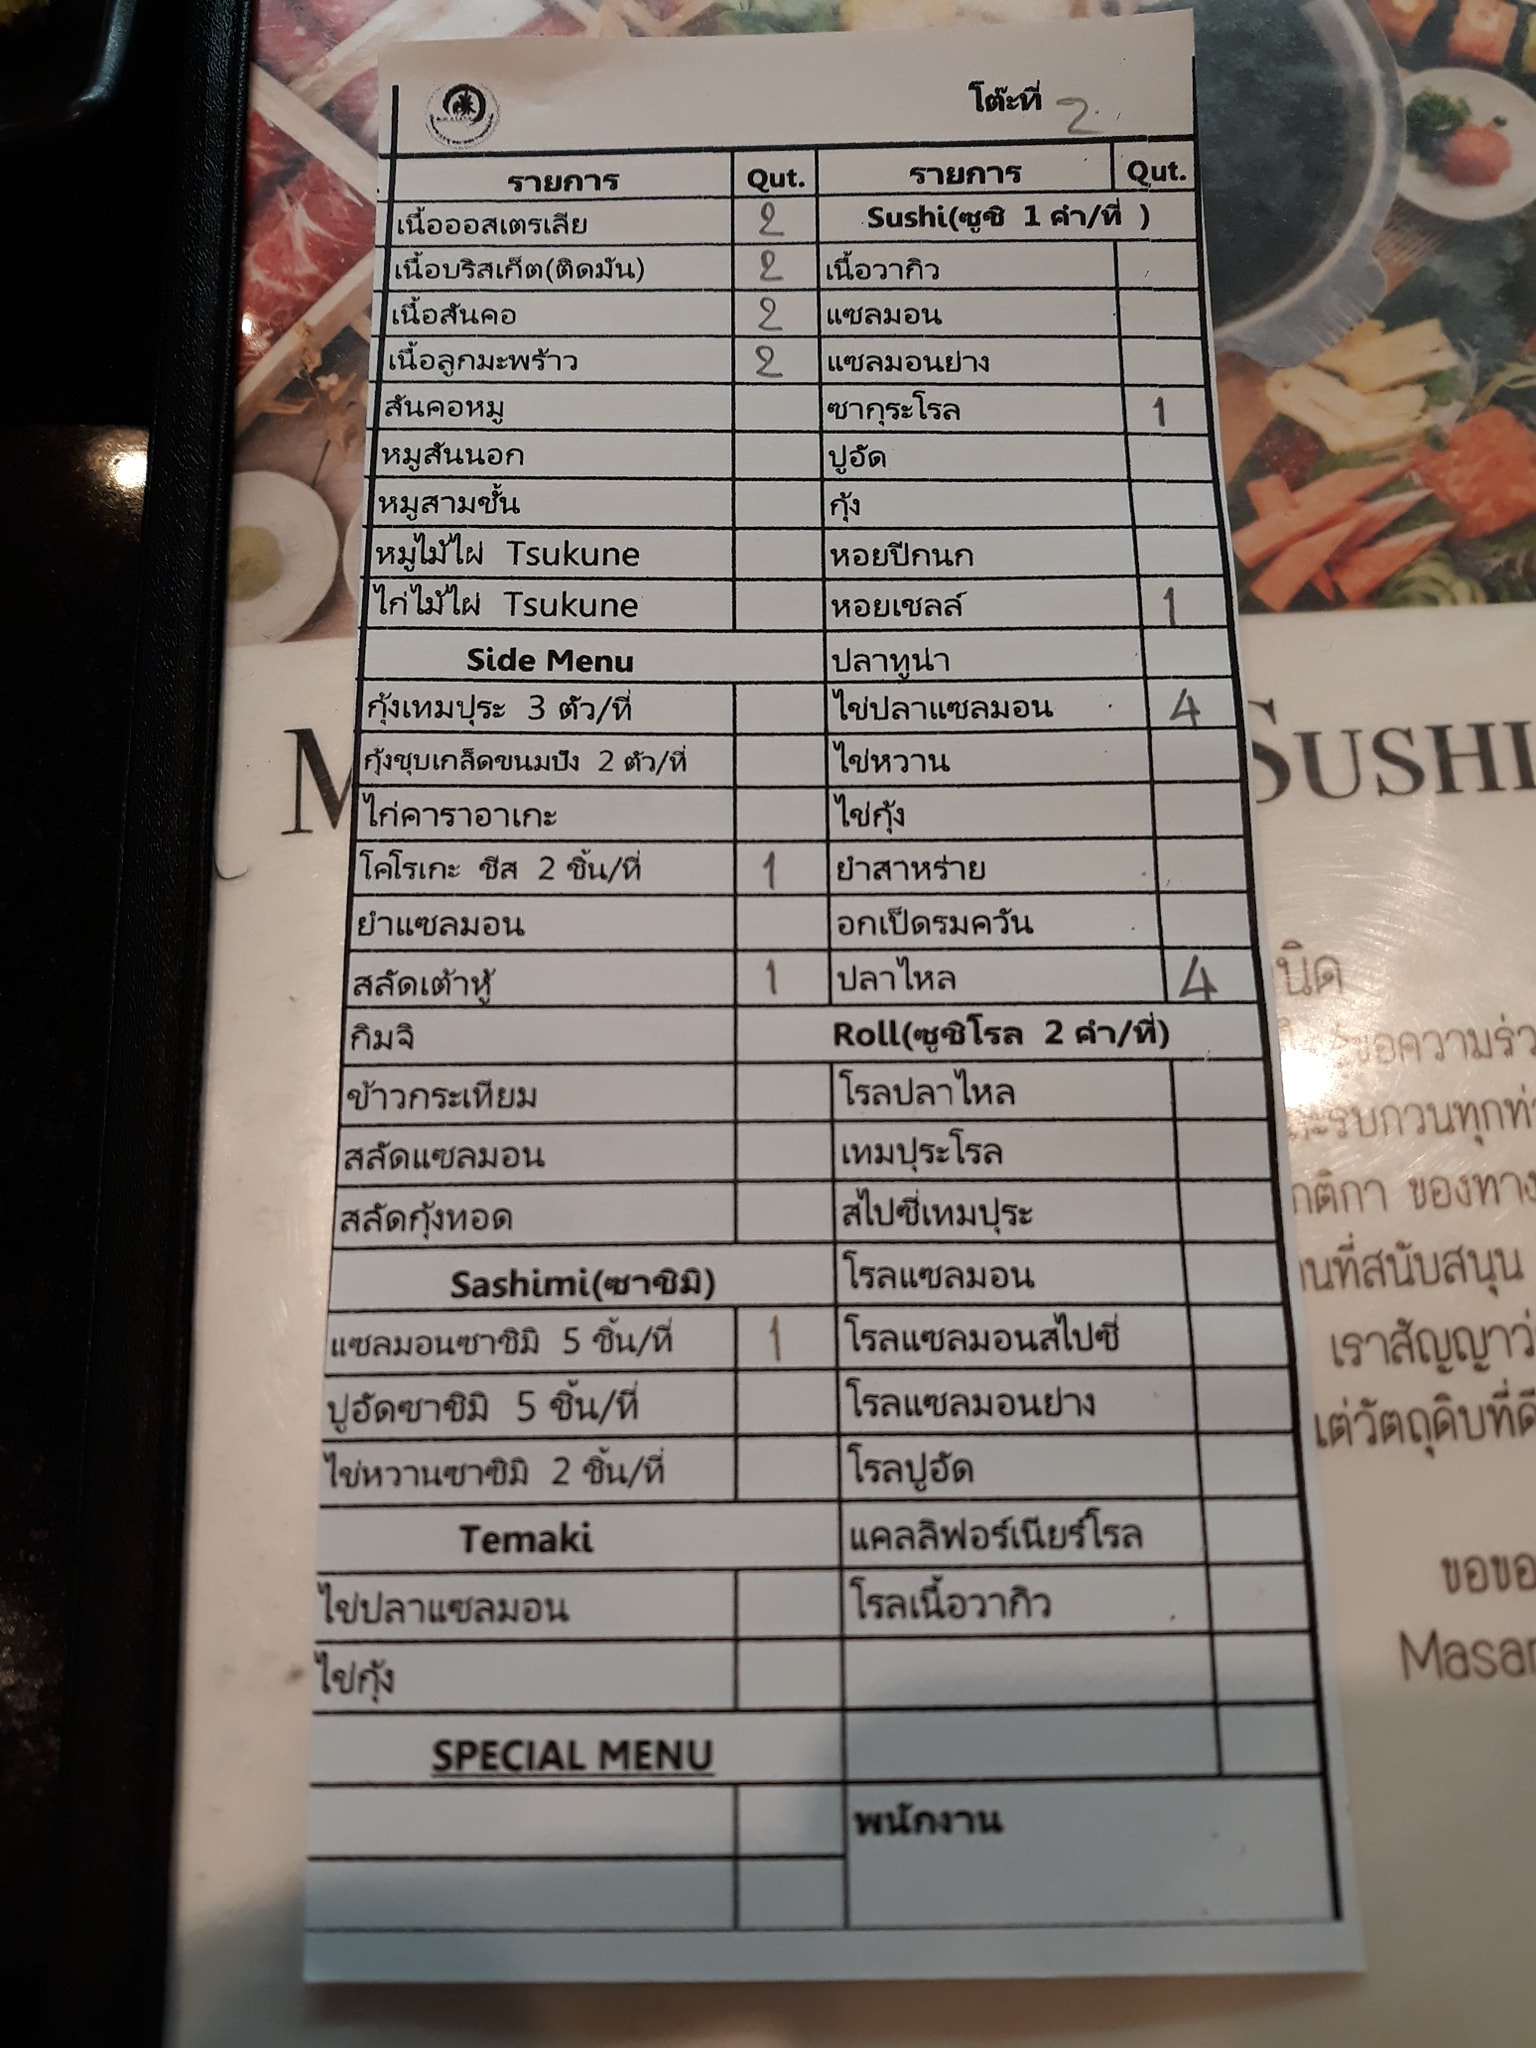 โต๊ะที่ 2
รายการ Qut. รายการ Qut.
เนื้อออสเตรเลีย 2 Sushi(ซูชิ 1 คำ/ที่ )
เนื้อบริสเก็ต(ติดมัน) 2 เนื้อวากิว
เนื้อสันคอ 2 แซลมอน
เนื้อลูกมะพร้าว 2 แซลมอนย่าง
สันคอหมู ซากุระโรล 1
หมูสันนอก ปูอัด
หมูสามชั้น กุ้ง
หมูไม้ไผ่ Tsukune หอยปีกนก
ไก่ไม้ไผ่ Tsukune หอยเชลล์ 1
Side Menu ปลาทูน่า
กุ้งเทมปุระ 3 ตัว/ที่ ไข่ปลาแซลมอน 4
กุ้งชุบเกล็ดขนมปัง 2 ตัว/ที่ ไข่หวาน
ไก่คาราอาเกะ ไข่กุ้ง
โคโรเกะ ชีส 2 ชิ้น/ที่ 1 ยำสาหร่าย
ยำแซลมอน อกเป็ดรมควัน
สลัดเต้าหู้ 1 ปลาไหล 4
กิมจิ Roll(ซูชิโรล 2 คำ/ที่)
ข้าวกระเทียม โรลปลาไหล
สลัดแซลมอน เทมปุระโรล
สลัดกุ้งทอด สไปซี่เทมปุระ
Sashimi(ซาชิมิ) โรลแซลมอน
แซลมอนซาชิมิ 5 ชิ้น/ที่ 1 โรลแซลมอนสไปซี่
ปูอัดซาชิมิ 5 ชิ้น/ที่ โรลแซลมอนย่าง
ไข่หวานซาซิมิ 2 ชิ้น/ที่ โรลปูอัด
Temaki แคลลิฟอร์เนียร์โรล
ไข่ปลาแซลมอน โรลเนื้อวากิว
ไข่กุ้ง
SPECIAL MENU
พนักงาน
SUSHI